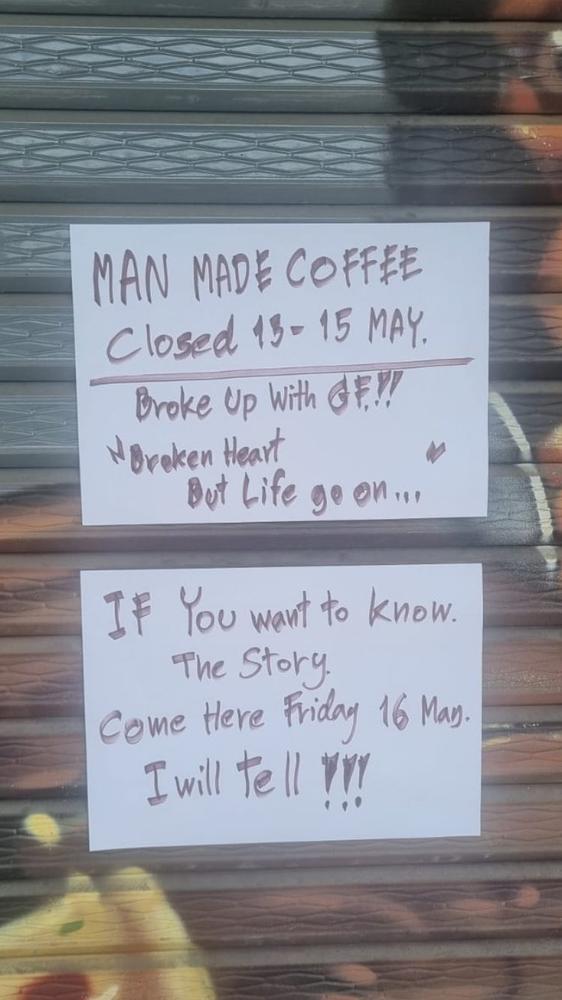 MAN MADE COFFEE
Closed 13-15 MAY.
Broke Up With GF.!!
"Broken Heart
But Life go on... "
IF You want to know.
The Story.
Come Here Friday 16 May.
I will Tell !!!